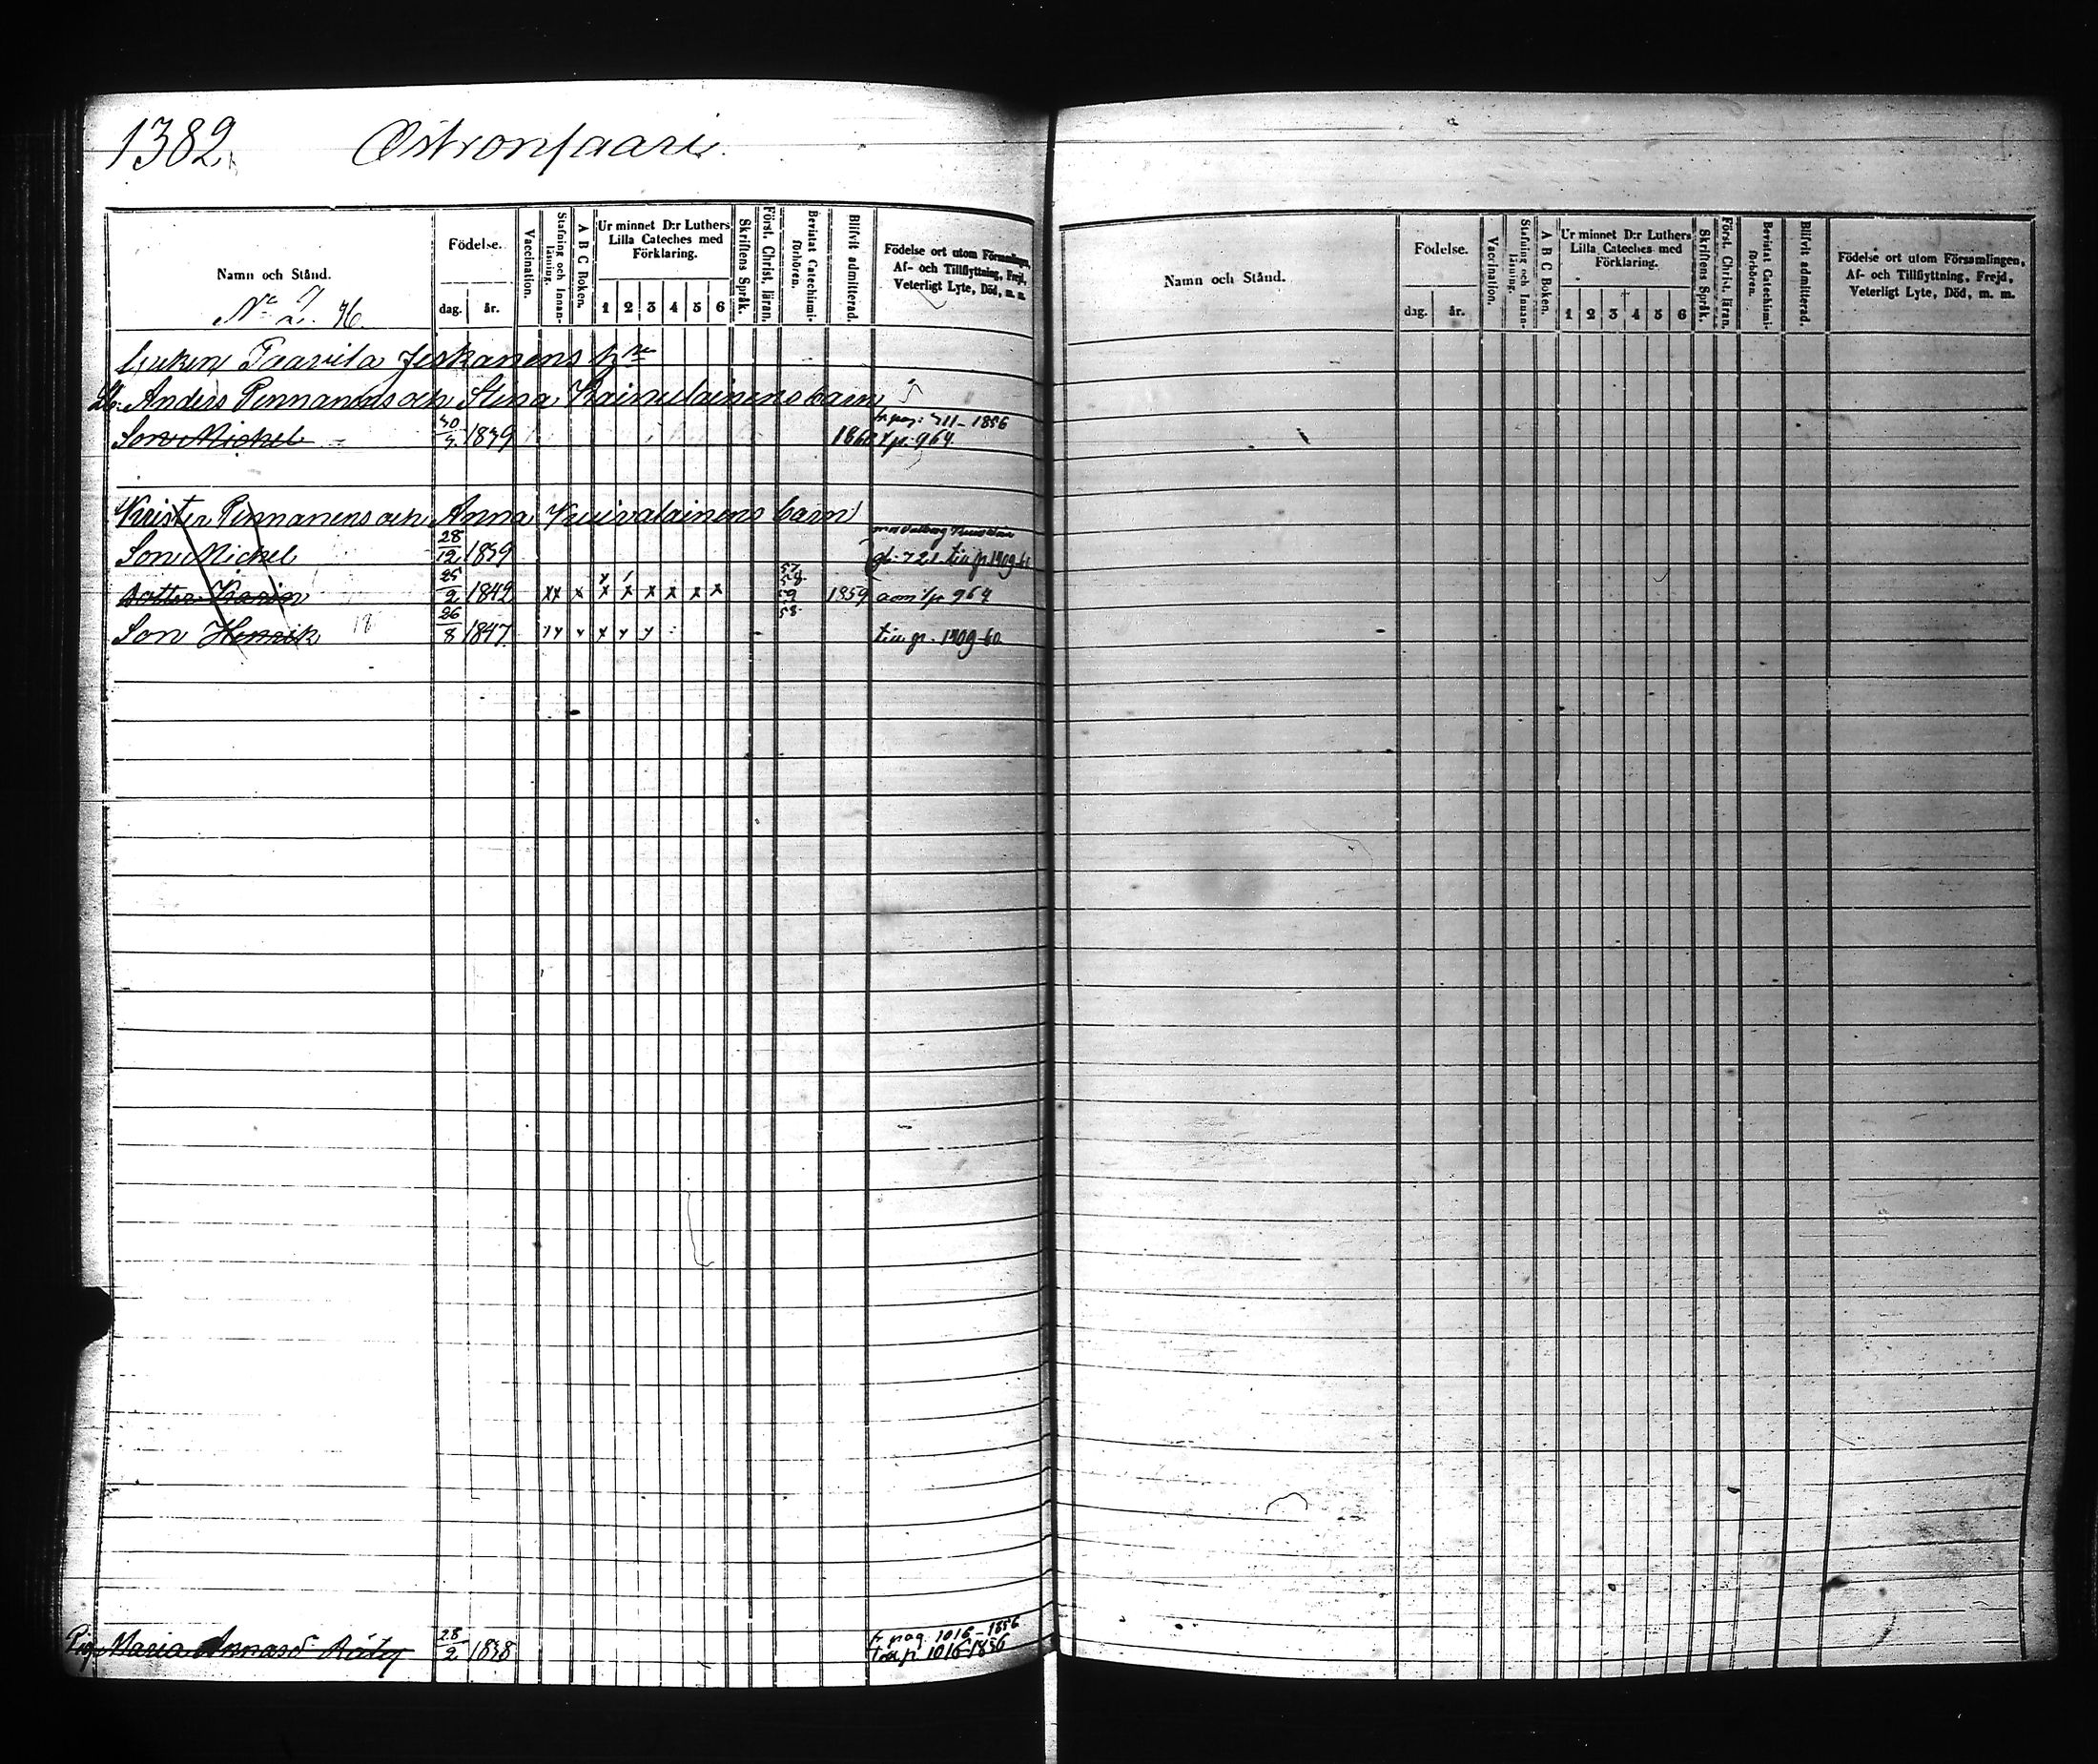 1382.
Ostronsaari.
Namn och Stånd.
Födelse.
dag. år.
Vaccination.
Stafning och Innanläsning.
A B C Boken.
Ur minnet D:r Luthers
Lilla Cateches med
Förklaring.
1 2 3 4 5 6
Skriftens Språk.
Först. Christ. läran.
Bevistat Catechismiförhören.
Blifvit admitterad.
Födelse ort utom Församlingen,
Af- och Tillflyttning, Frejd,
Veterligt Lyte, Död, m. m.
No 2. 76.
Taavila Jeskanens
Anders Pennanens och Stina Kainulainens barn
Son Michel 30/3 1839 1860 t p. 964
fr pag: 311-1856
Krister Pennanens och Anna Kuivalainens barn
Son Michel 28/12 1839 721 till p 1409-60
57
58
Dotter Karin 25/2 1842 xx x x x x x x x 59 1859 964
58
Son Henrik 26/8 1847. till p. 1409-60
Pig. Maria Annasdr Räty 28/2 1838 fr pag 1016-1856
till p 1016-1856
Namn och Stånd.
Födelse.
dag. år.
Vaccination.
Stafning och Innanläsning.
A B C Boken.
Ur minnet D:r Luthers
Lilla Cateches med
Förklaring.
1 2 3 4 5 6
Skriftens Språk.
Först. Christ. läran.
Bevistat Catechismiförhören.
Blifvit admitterad.
Födelse ort utom Församlingen,
Af- och Tillflyttning, Frejd,
Veterligt Lyte, Död, m. m.